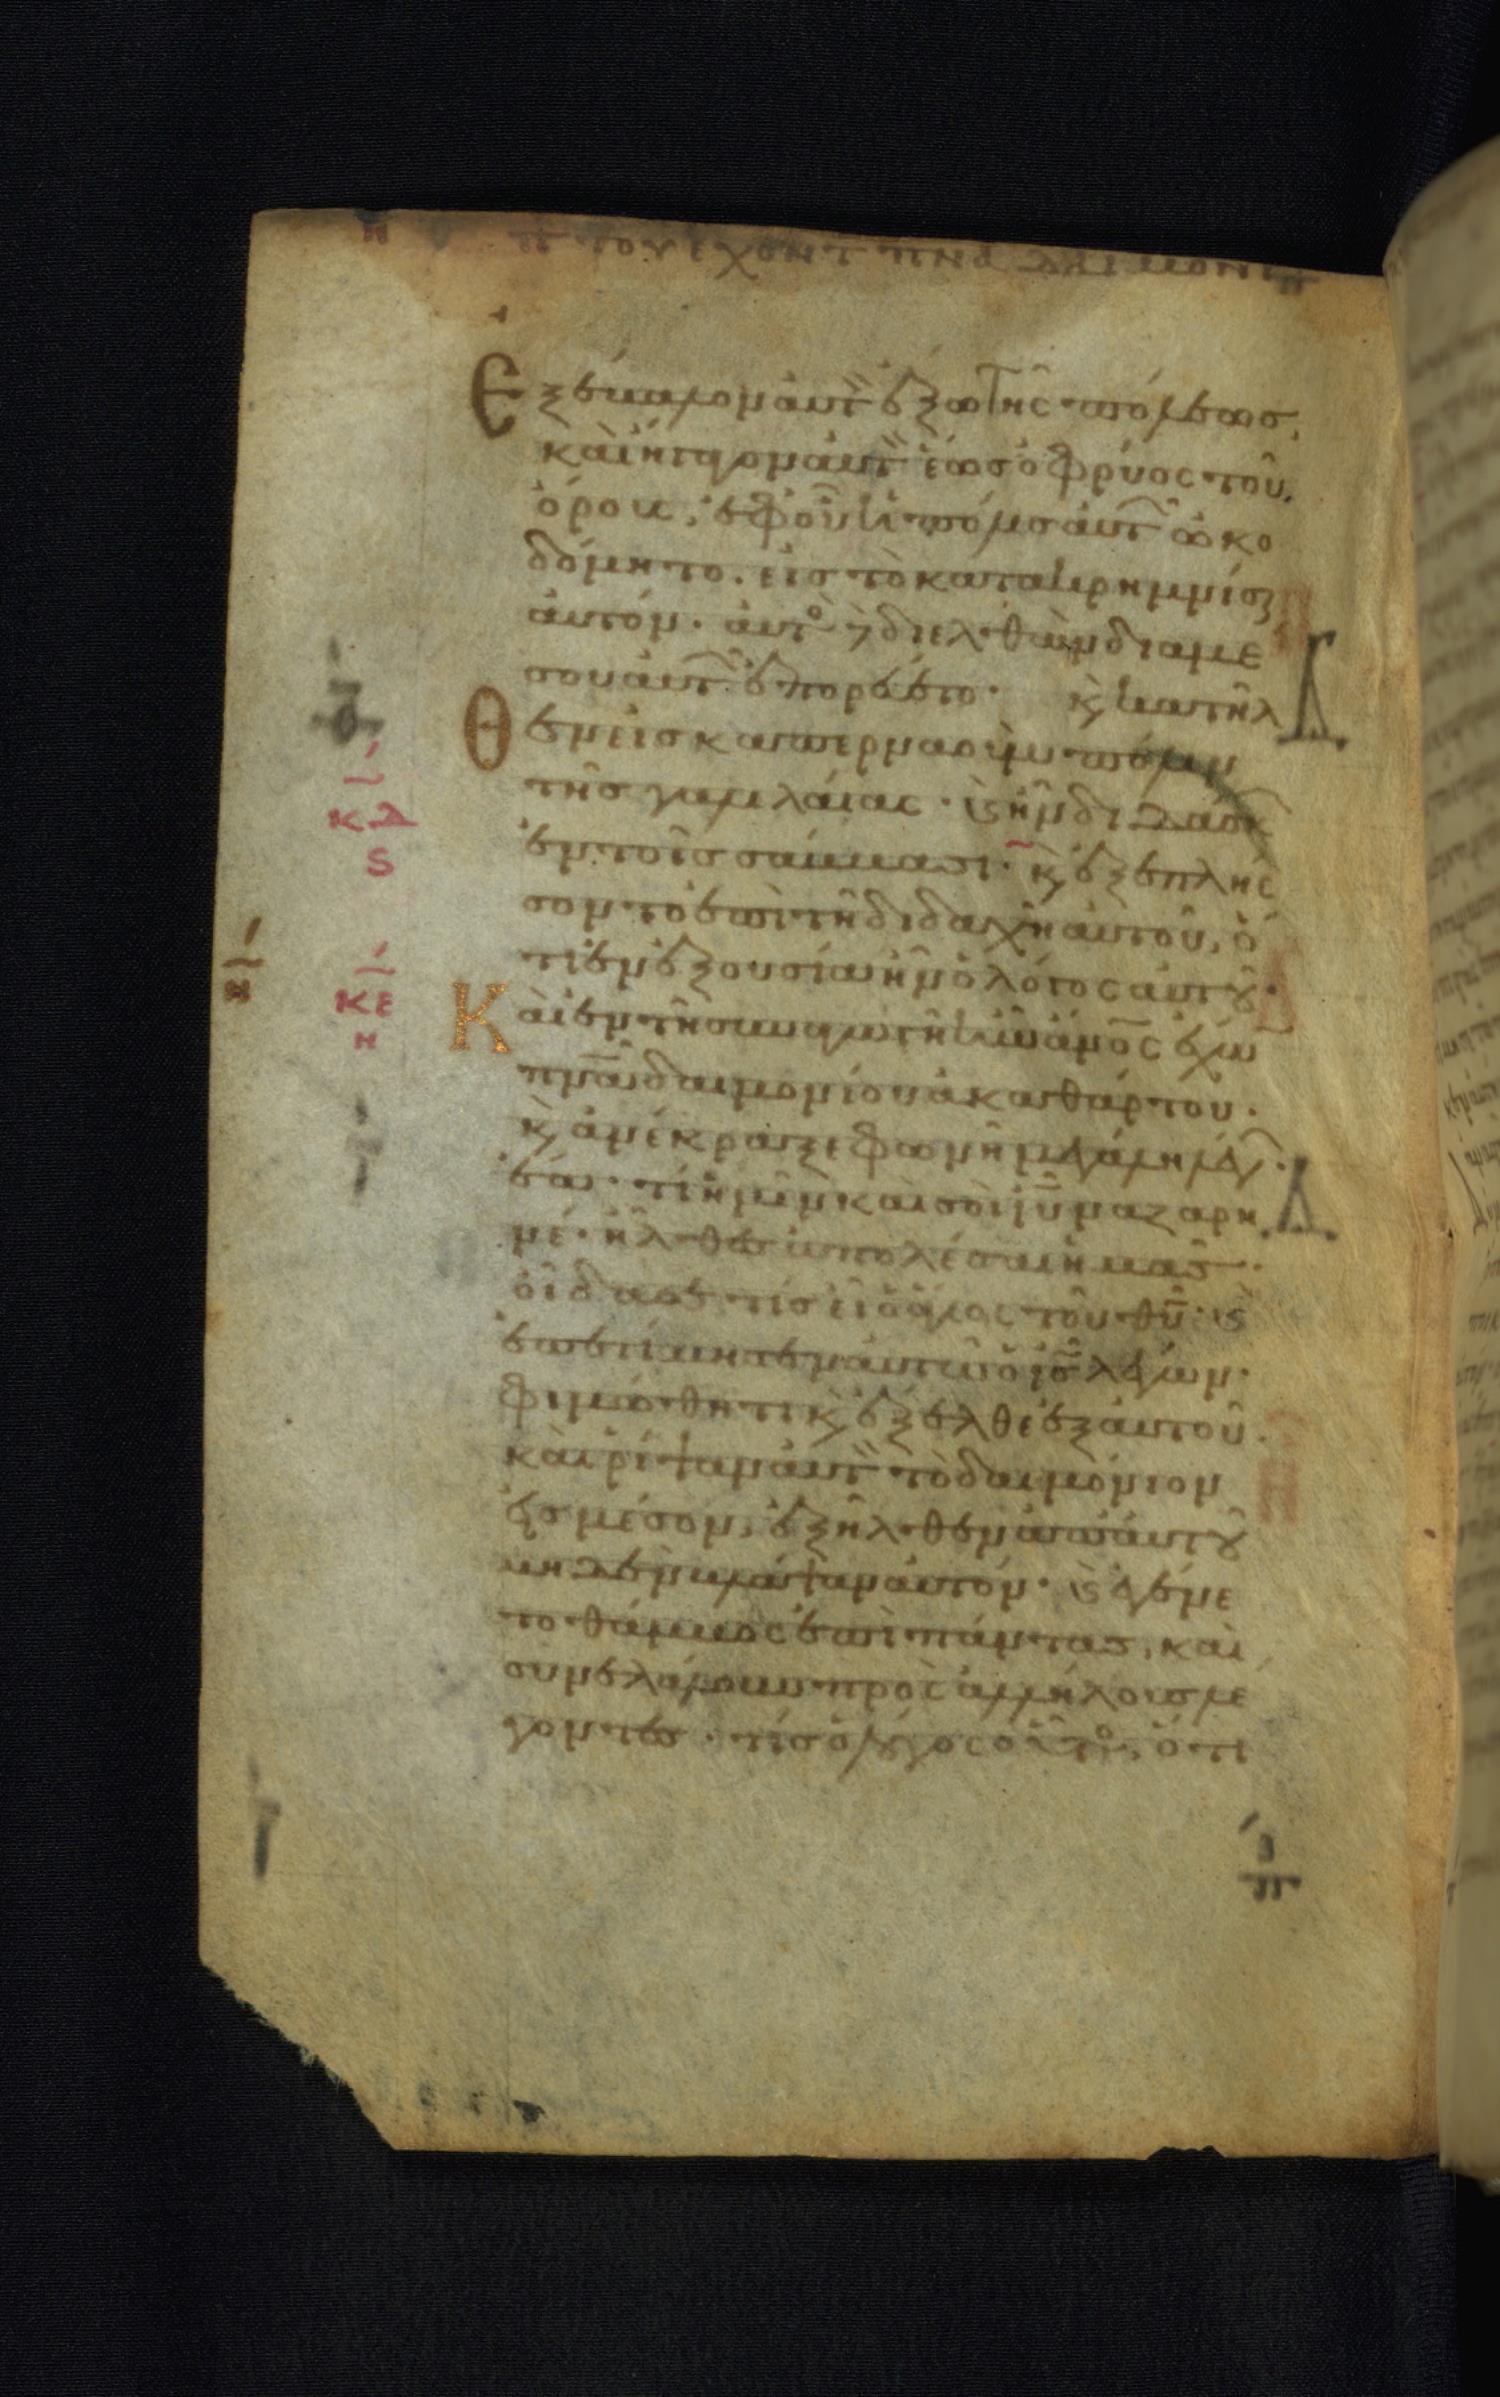 η π του εχοντ πνα δαιμονι
Εξέβαλον αυτ̀ ἔξω τῆς πόλεως,
καὶ ἤγαγον αὐτ̀ ἕως ὀφρύος τοῦ
ὄρους, ἐφ οὗ ἡ πόλις αὐτ̃ ὠκο
δόμητο. εἰς τὸ κατακρημνίσ
αὐτόν. αὐτὸ δὲ διελθὼν διαμε
σου αὐτ̃ ἐπορεύετο. κ̀ κατῆλ
Θεν εἰς καπερναοὺμ πόλιν
τῆς γαλιλαίας. κ̀ ἦν διδάσκ
ἐν τοῖς σάββασι. κ̀ ἐξεπλής
σοντο ἐπὶ τῆ διδαχῆ αὐτοῦ, ὅ
τι ἐν ἐξουσία ἦν ὁ λόγος αὐτου.
Καὶ ἐν τῆ συναγωγῆ ἦν ἄνο̅ς ἔχω
πν̅α δαιμονίου ἀκαθάρτου.
κ̀ ἀνέκραξε φωνῆ μεγάλη λέγ.
ἔα. τί ἡμῖν καὶ σοὶ ιυ̅ ναζαρη
νέ. ἦλθες ἀπολέσαι ἡμᾶς.
οἶδά σε τίς εἶ ὁ ἅγιος τοῦ θυ̅. κ̀
ἐπετίμησεν αὐτῶ ὁ ις̅ λέγων.
φιμώθητι κ̀ ἔξελθε ἐξ αὐτοῦ.
καὶ ῥίψαν αὐτ̀ τὸ δαιμόνιον
εἰς μέσον, ἐξῆλθεν ἀπ αὐτου
μηδὲν βλάψαν αὐτόν. κ̀ ἐγένε
το θάμβος ἐπὶ πάντας, καὶ
συνελάλουν πρὸς ἀλλήλους λέ
γοντες. τίς ὁ λόγος οὗτο, ὅτι
κδ
ς
η
κε
η